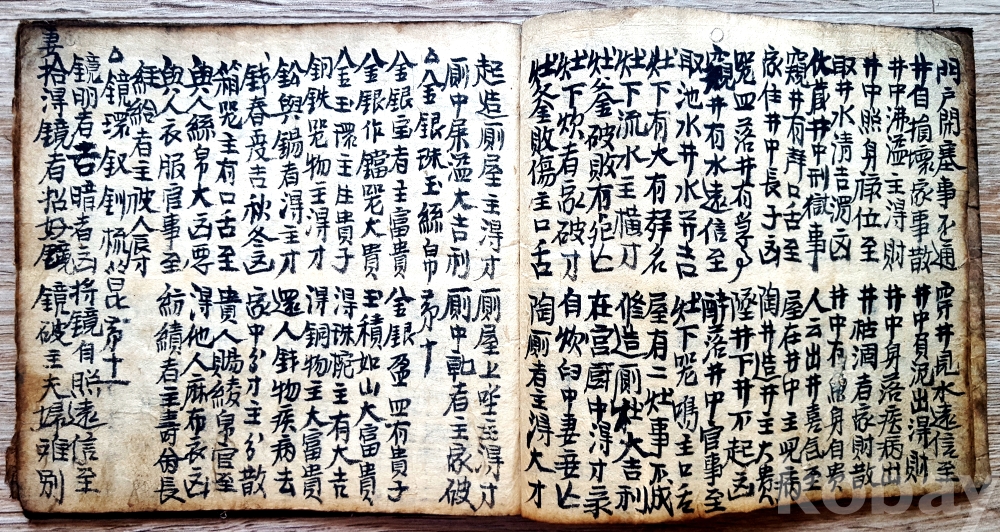 門戶開塞事不通 穿井見水遠信至
井自損壞家事散 井中負泥出得財
井中沸溢主得財 井中身落疾病出
井中照身祿位至 井枯涸者家財散
取井水清吉渾凶 井中有魚身自貴
伏藏井中刑獄事 人云出井喜氣至
窺井有聲口舌至 屋在井中主児病
家住井中長子凶 陶井造井主大貴
咒皿落井有 墜井下井不起凶
窺井有水遠信至 醉落井中官事至
取池水井水并吉 灶下咒鳴主口舌
灶下有大有群名 屋有二灶事不成
灶下流水主橫才 修造廁灶大吉利
灶釜破敗有死亡 在宮廚中得才彔
灶下炊者家破才 自炊臼中妻妾亡
灶釜敗傷主口舌 陶廁者主得大才
起造廁屋主得才 廁屋上坐主得才
廁中屎溢大吉利 廁中乾者主家破
△金銀珠玉絲帛 第十
金銀宝者主富貴 金銀盈皿有貴子
金銀作鐺咒大貴 玉積如山大富貴
金玉環主生貴子 得珠椀主有大吉
銅铁咒物主得才 得銅物主大富貴
鉛與錫者得主才 還人針物疾病去
針春夏吉秋冬凶 家中分才主分散
箱咒主有口舌至 貴人賜綾帛官至
與人絲帛大凶要 得他人麻布衣凶
與人衣服官事至 紡績者主壽命長
經給者主被人辱才
△鏡環釵釧梳 第十一
鏡明者吉暗者凶 将鏡自照遠信至
妻拾得鏡者招好鏡 鏡破主夫婦難別